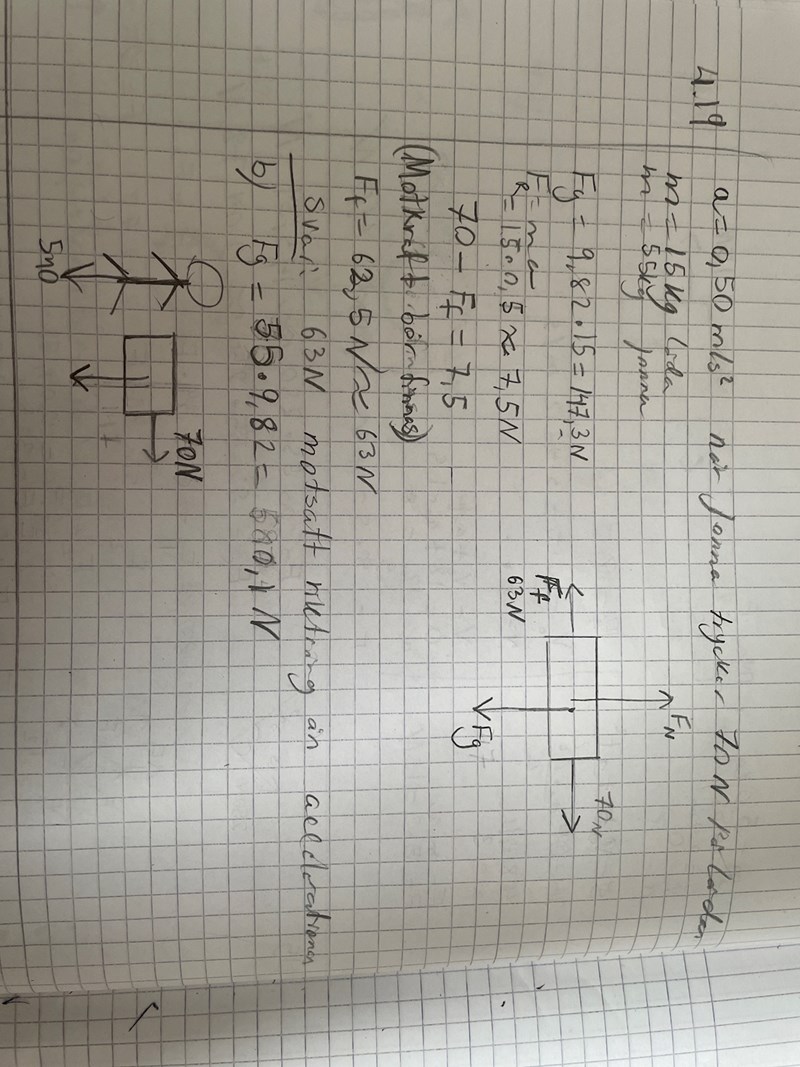 4.19
a = 0,50 m/s² när Jonna trycker 70N på lådan
m = 15 kg låda
m = 55kg Jonna
Fg = 9,82 · 15 = 147,3N
F = m a
R = 15 · 0,5 ≈ 7,5 N
70 - Ff = 7,5
(Motkraft bör finnas)
Ff = 62,5 N ≈ 63 N
Svar: 63N motsatt riktning än accelerationen
FN
70N
Ff
63N
Fg
b) Fg = 55 · 9,82 = 540,1 N
70N
540